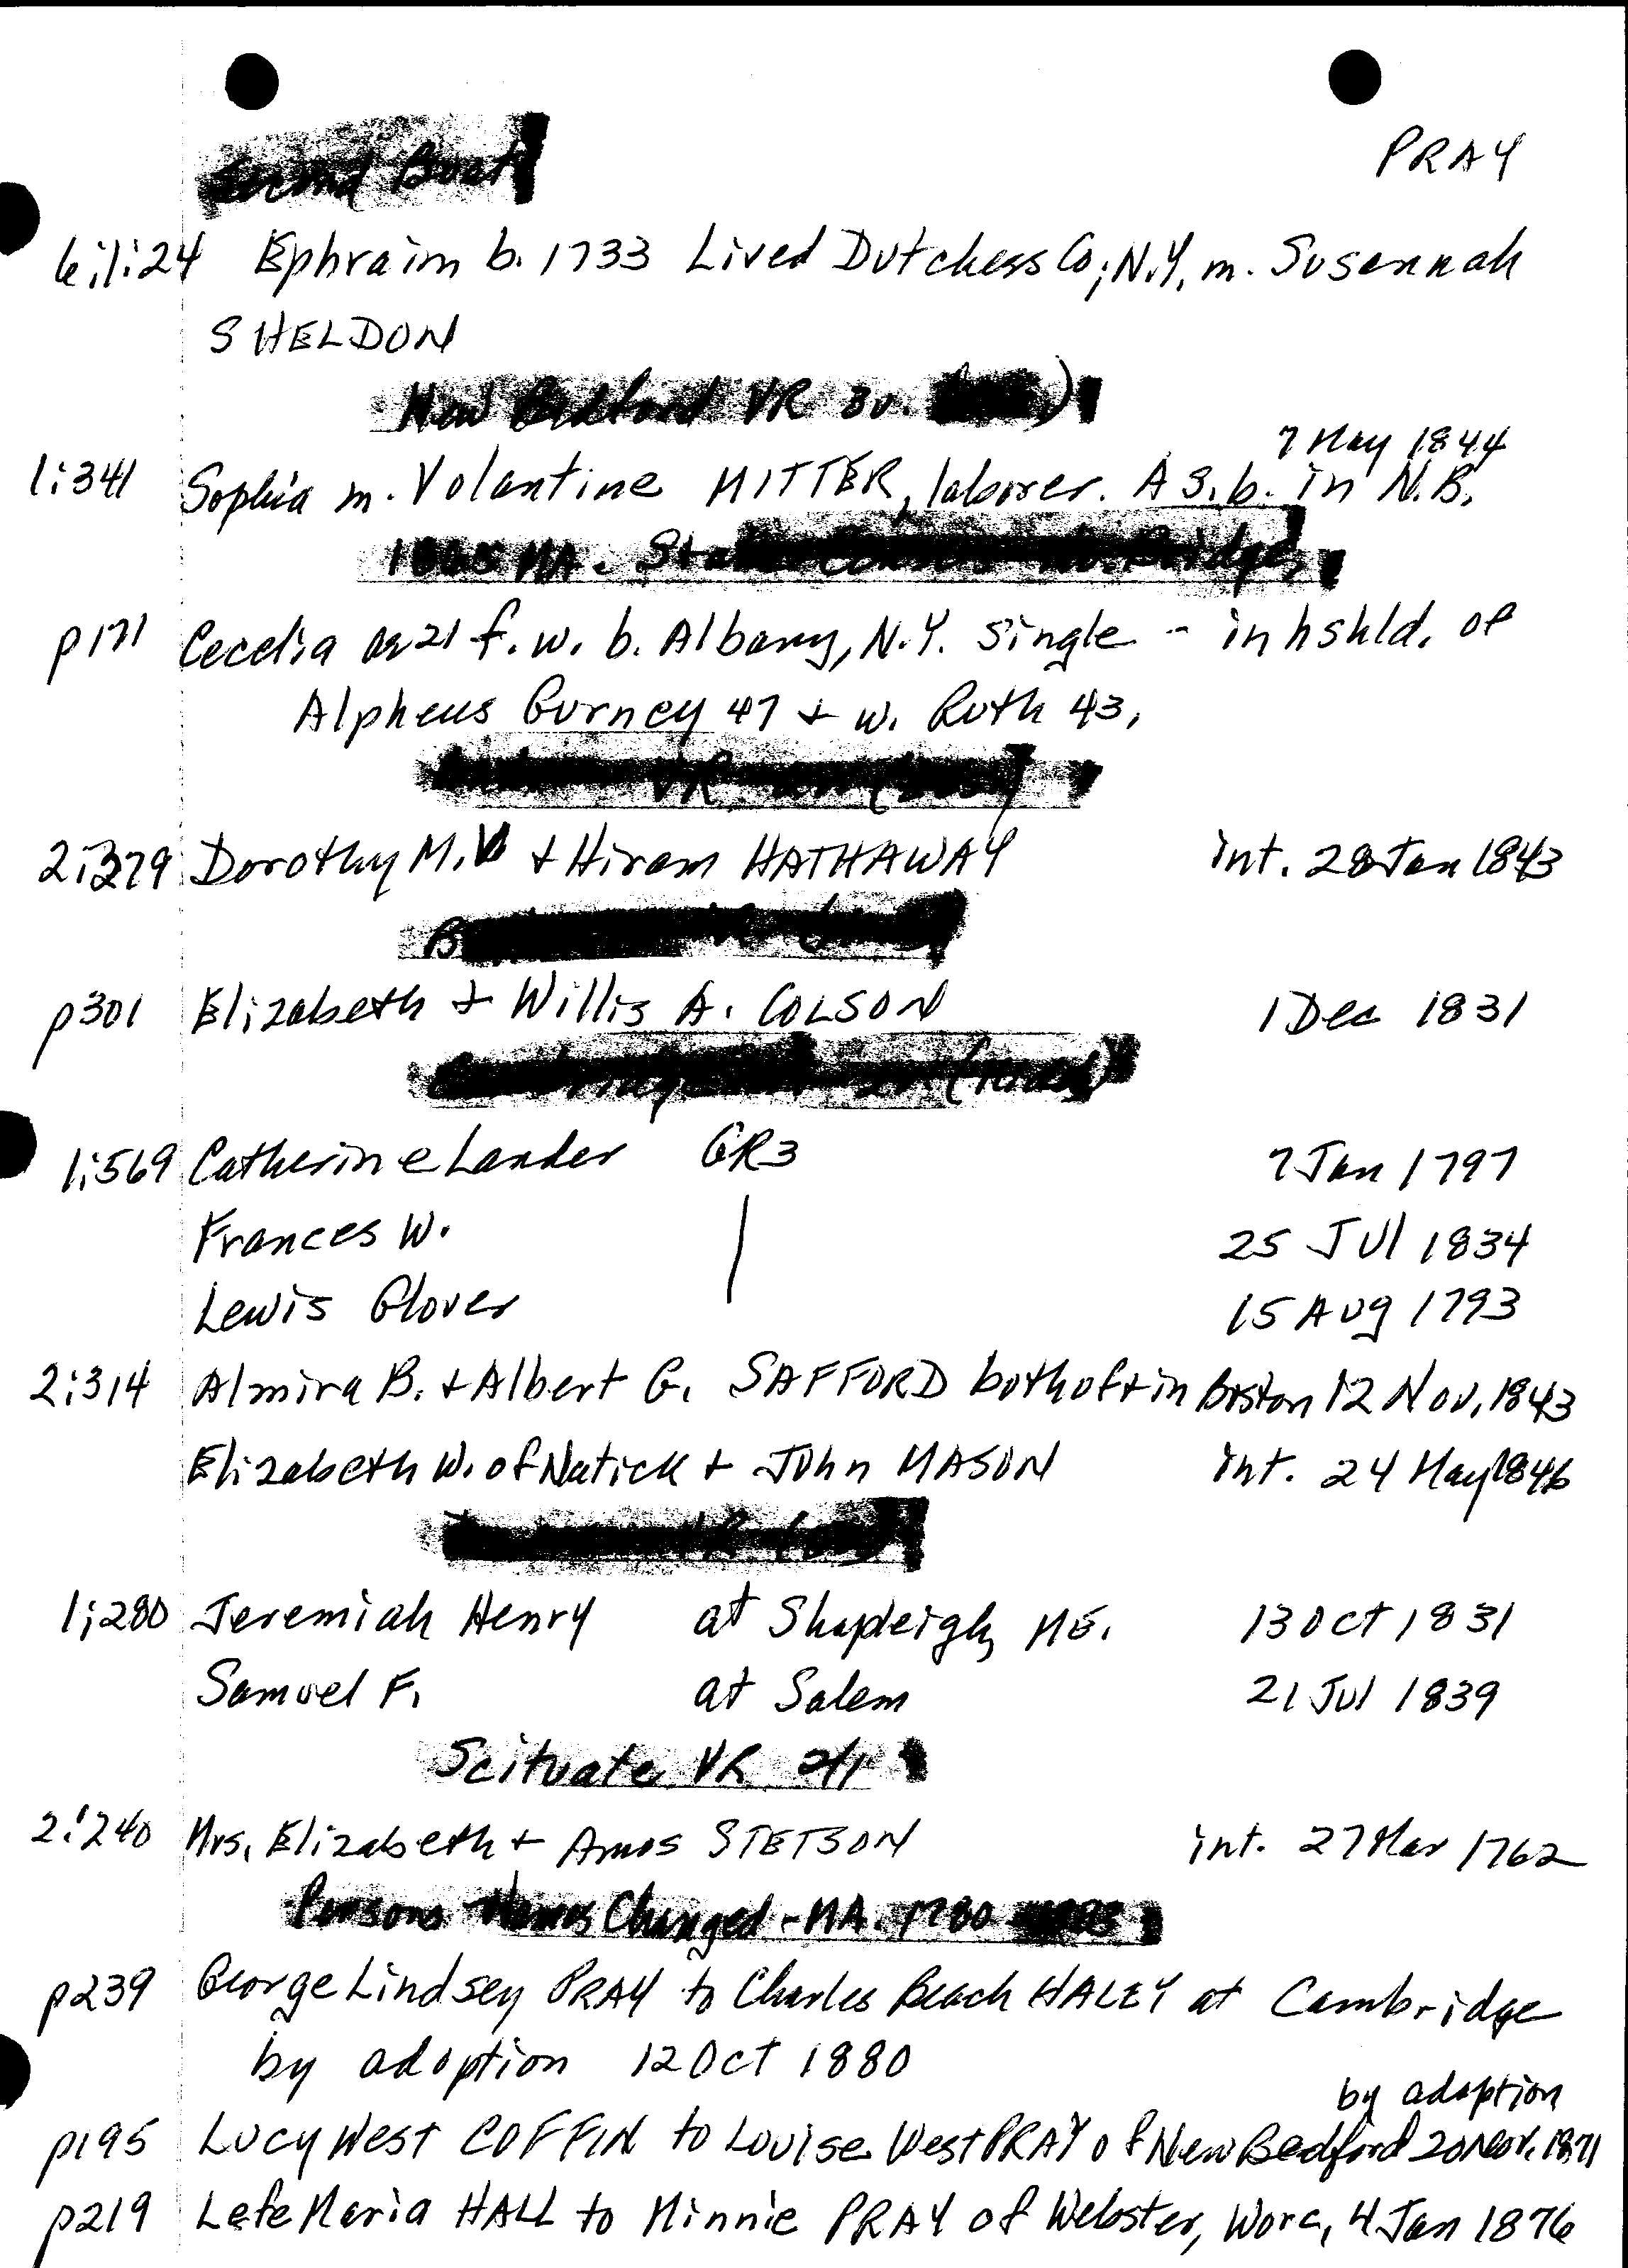 PRAY
Second Boat
6:1:24 Ephraim b. 1733 Lived Dutchess Co; N.Y. m. Susannah
SHELDON
New Bedford VR 3v.
7 May 1844
1:341 Sophia m. Volantine MITTER, laborer. A S. b. in N.B.
MA. State Census
p171 Cecelia ae 21 f. w. b. Albany, N.Y. Single - in hshld. of
Alpheus Gurney 47 + w. Ruth 43,
VR
2:379 Dorothy M. + Hiram HATHAWAY int. 28 Jan 1843
p301 Elizabeth + Willis A. COLSON 1 Dec 1831
1:569 Catherine Lander GR3 7 Jan 1797
Frances W. 25 Jul 1834
Lewis Glover 15 Aug 1793
2:314 Almira B. + Albert G. SAFFORD both of + in Boston 12 Nov. 1843
Elizabeth W. of Natick + John MASON int. 24 May 1846
1:280 Jeremiah Henry at Shapleigh, ME. 13 Oct 1831
Samuel F. at Salem 21 Jul 1839
Scituate VR
2:240 Mrs. Elizabeth + Amos STETSON int. 27 Mar 1762
Persons Names Changed - MA. 1780
p239 George Lindsey PRAY to Charles Beach HALEY at Cambridge
by adoption 12 Oct 1880
by adoption
p195 Lucy West COFFIN to Louise West PRAY of New Bedford 20 Nov. 1871
p219 Lefe Maria HALL to Minnie PRAY of Webster, Worc, 4 Jan 1876